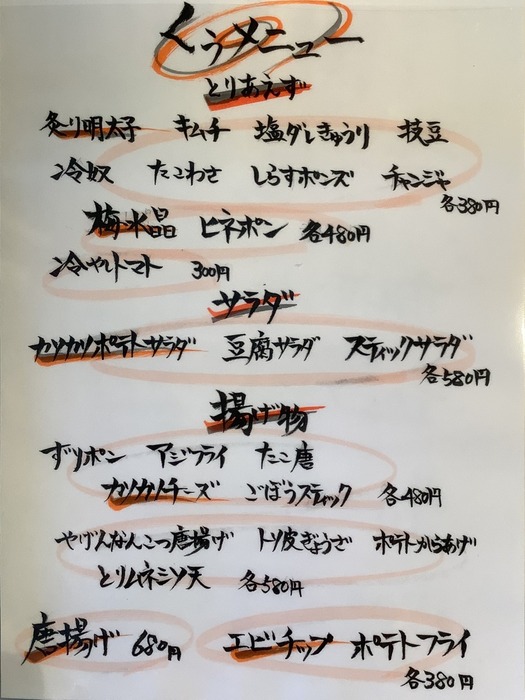 くうメニュー
とりあえず
炙り明太子 キムチ 塩ダレきゅうり 枝豆
冷奴 たこわさ しらすポンズ チャンジャ
各380円
梅水晶 ピネポン 各480円
冷やしトマト 300円
サラダ
カリカリポテトサラダ 豆腐サラダ スティックサラダ
各580円
揚げ物
ずりポン アジフライ たこ唐
カリカリチーズ ごぼうスティック 各480円
やげんなんこつ唐揚げ トリ皮ぎょうざ ポテトからあげ
とりムネミソ天 各580円
唐揚げ 680円 エビチップ ポテトフライ
各380円